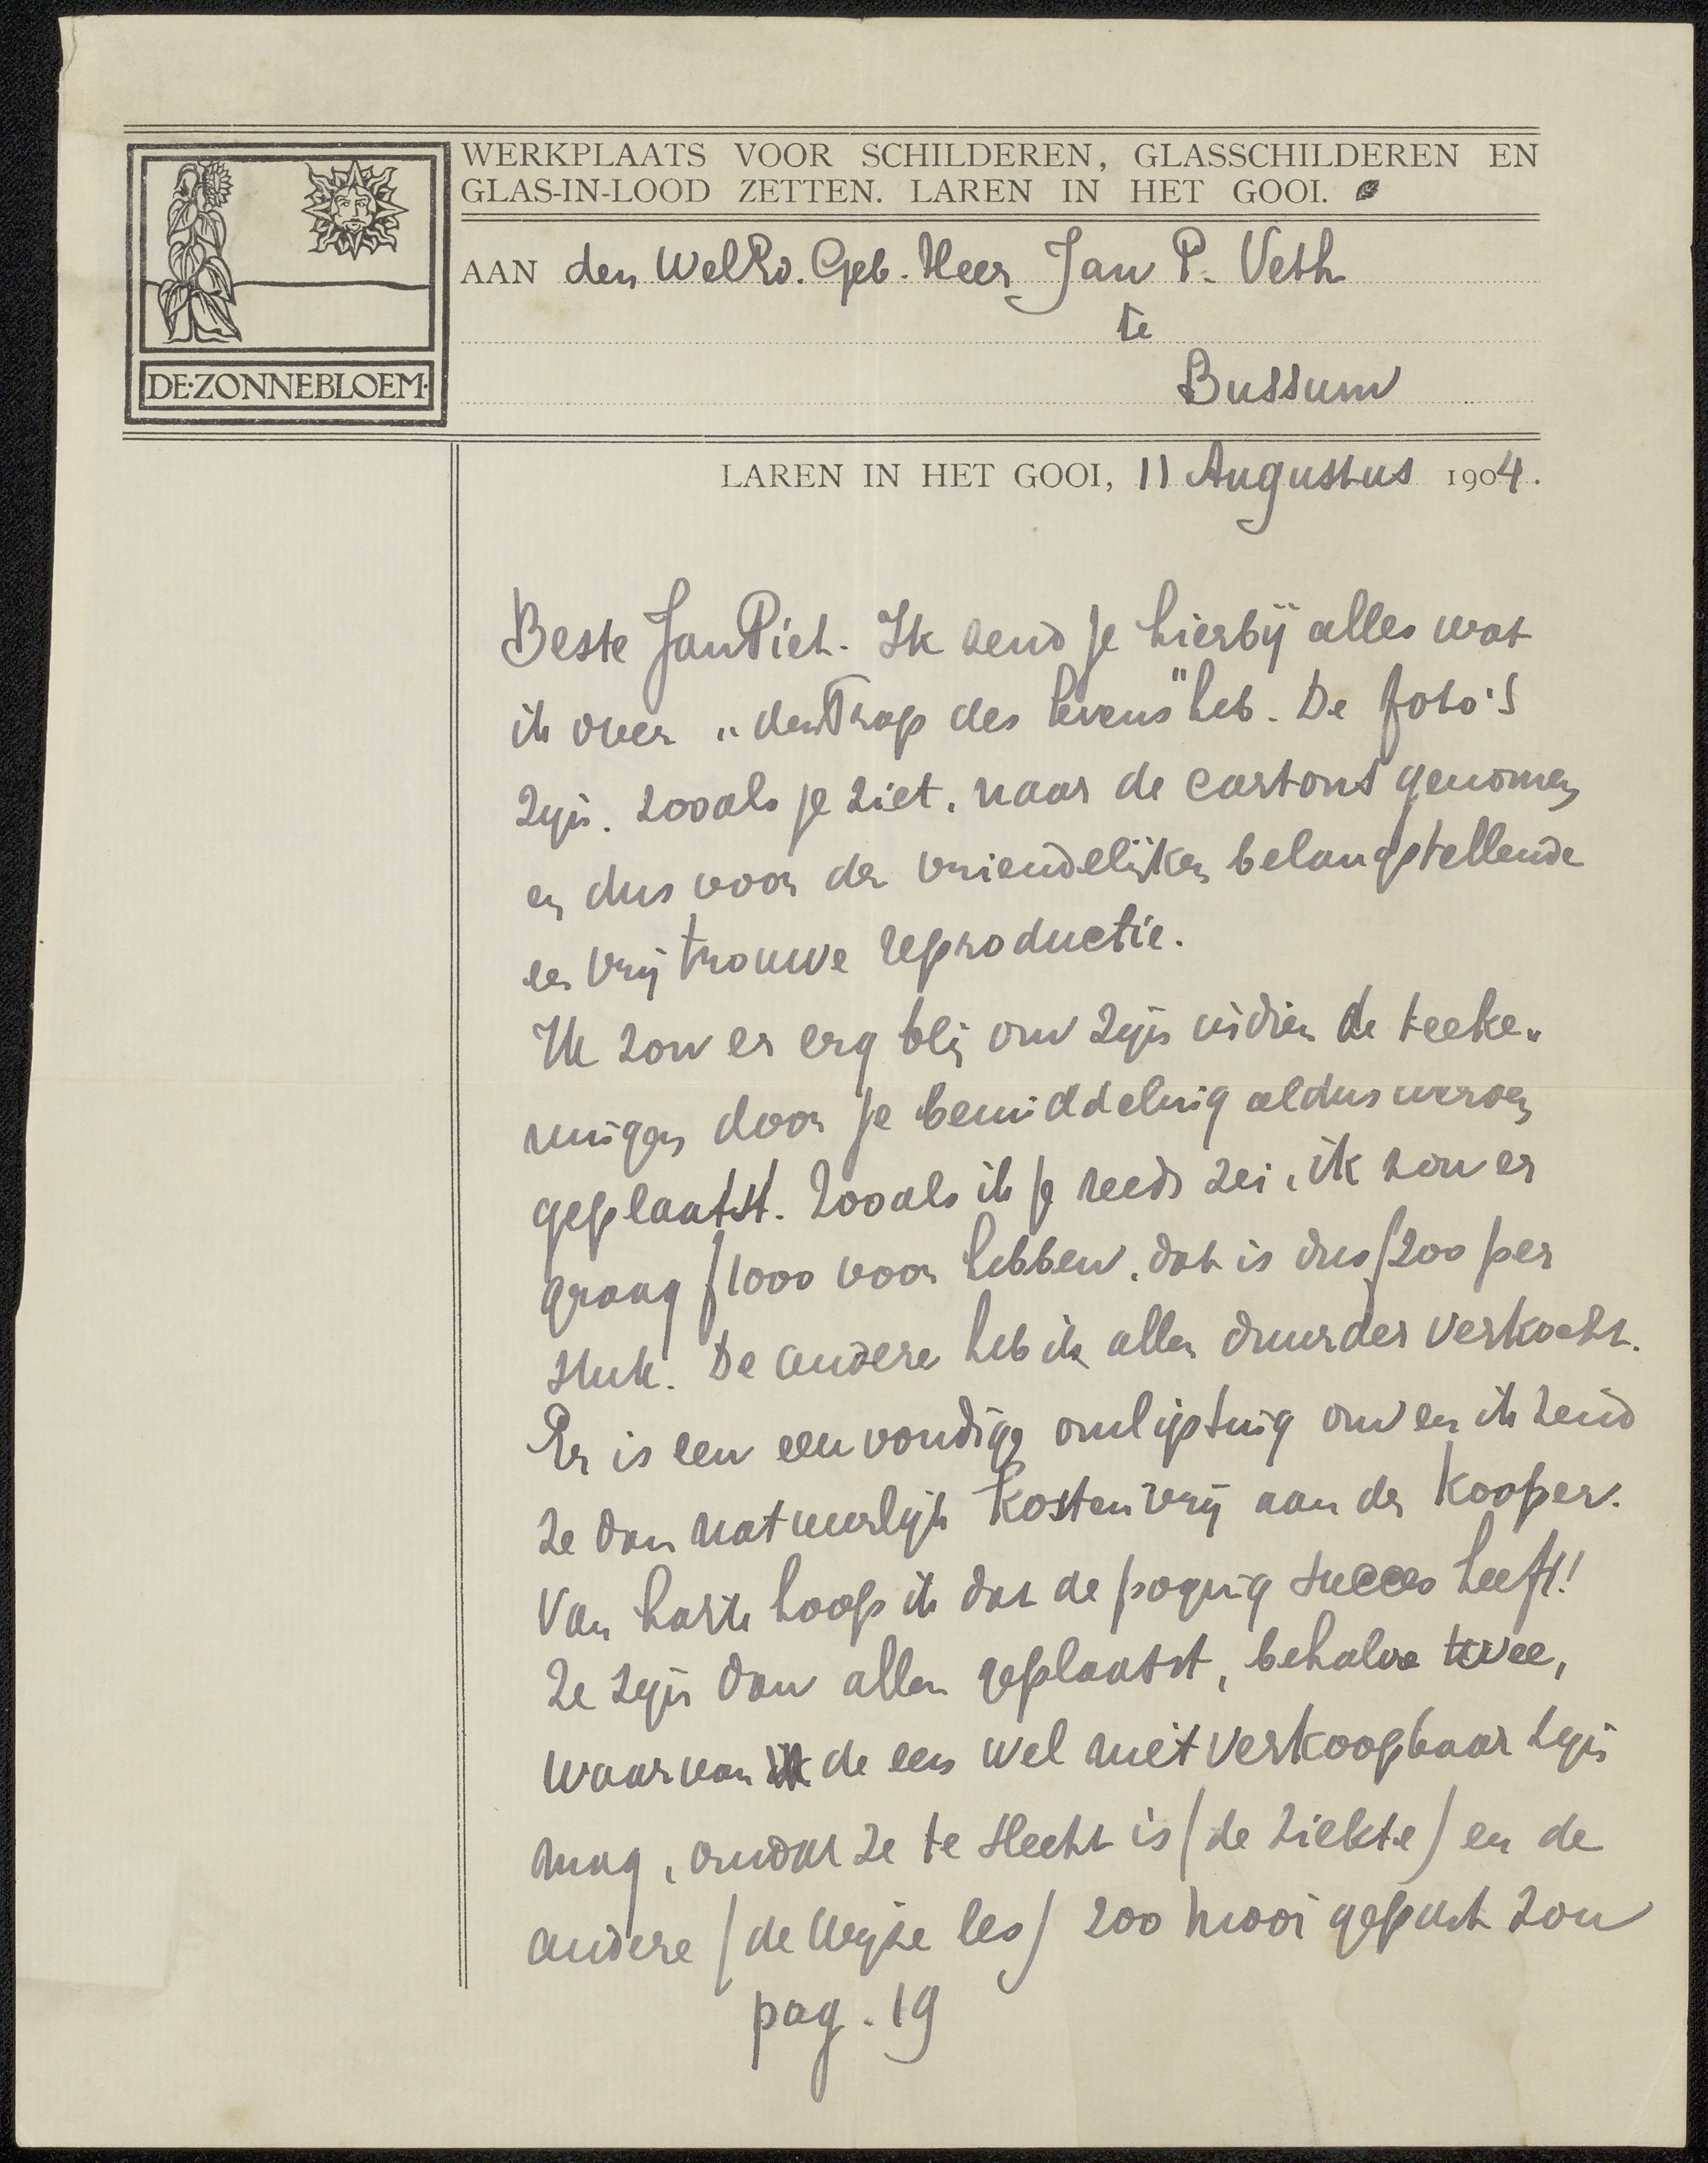 WERKPLAATS VOOR SCHILDEREN, GLASSCHILDEREN EN
GLAS-IN-LOOD ZETTEN. LAREN IN HET GOOI.
DE·ZONNEBLOEM·
AAN den WelEd. Geb. Heer Jan P. Veth
te
Bussum
LAREN IN HET GOOI, 11 Augustus 1904.
Beste Jan Piet. Ik zend je hierbij alles wat
ik over „den Trap des levens" heb. De foto's
zijn, zooals je ziet, naar de cartons genomen
en dus voor den vriendelijken belangstellende
een vrij trouwe reproductie.
Ik zou er erg blij om zijn indien de teeke„
ningen door je bemiddeling aldus werden
geplaatst. Zooals ik je reeds zei, ik zou er
graag f 1000 voor hebben, dat is dus f 200 per
stuk. De andere heb ik allen duurder verkocht.
Er is een eenvoudige omlijsting om en ik zend
ze dan natuurlijk kostenvrij aan den kooper.
Van harte hoop ik dat de poging succes heeft!
Ze zijn dan allen geplaatst, behalve twee,
waarvan de een wel niet verkoopbaar zijn
mag, omdat ze te slecht is (de ziekte) en de
andere (de wijze les) zoo mooi gepast zou
pag. 19